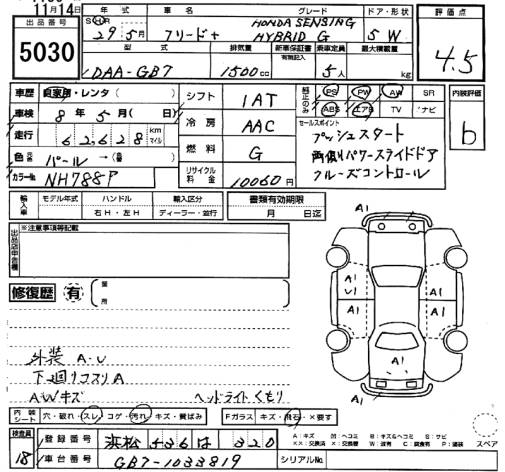 11月14日
出品番号
5030
年式 車名 グレード ドア・形状
29年5月 フリード+ HONDA SENSING
HYBRID G 5W
型式 排気量 新車保証書 乗車定員 最大積載量
有無記入
DAA-GB7 1500cc 5人 kg
評価点
4.5
車歴 自家用・レンタ( )
車検 8年5月( 日)
走行 62,628 km マイル
色 パール→(替)
カラーNo. NH788P
シフト 1AT
冷房 AAC
燃料 G
リサイクル料金 10060円
純正のみ PS PW AW SR
ABS エアB TV ナビ
セールスポイント
プッシュスタート
両側パワースライドドア
クルーズコントロール
内装評価
b
輸入車 モデル年式 ハンドル 輸入区分
年 右H・左H ディーラー・並行
書類有効期限
月 日迄
出品店申告欄
※注意事項等記載
修復歴 有 箇所
外装 A・U
下廻りコスリA
AWキズ ヘッドライトくもり
A1
A1
U1
A1
A1
A1
A1
A1
A1
内装シート 穴・破れ・スレ コゲ・汚れ キズ・黄ばみ
Fガラス キズ・飛石・×要す
A:キズ M:ヘコミ B:キズ&ヘコミ S:サビ
XX:交換済 X:交換要 W:波有 C:腐食有 P:塗装
スペア
検査員 18
登録番号 浜松 436は 320
車台番号 GB7-1033819
シリアルNo.